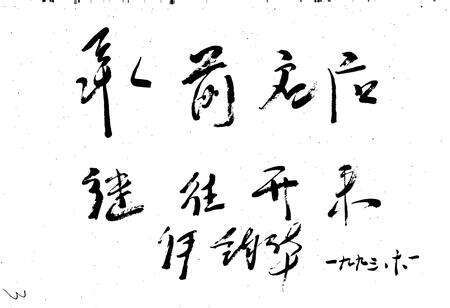 承前启后
继往开来
伊 华 一九九三.六.一